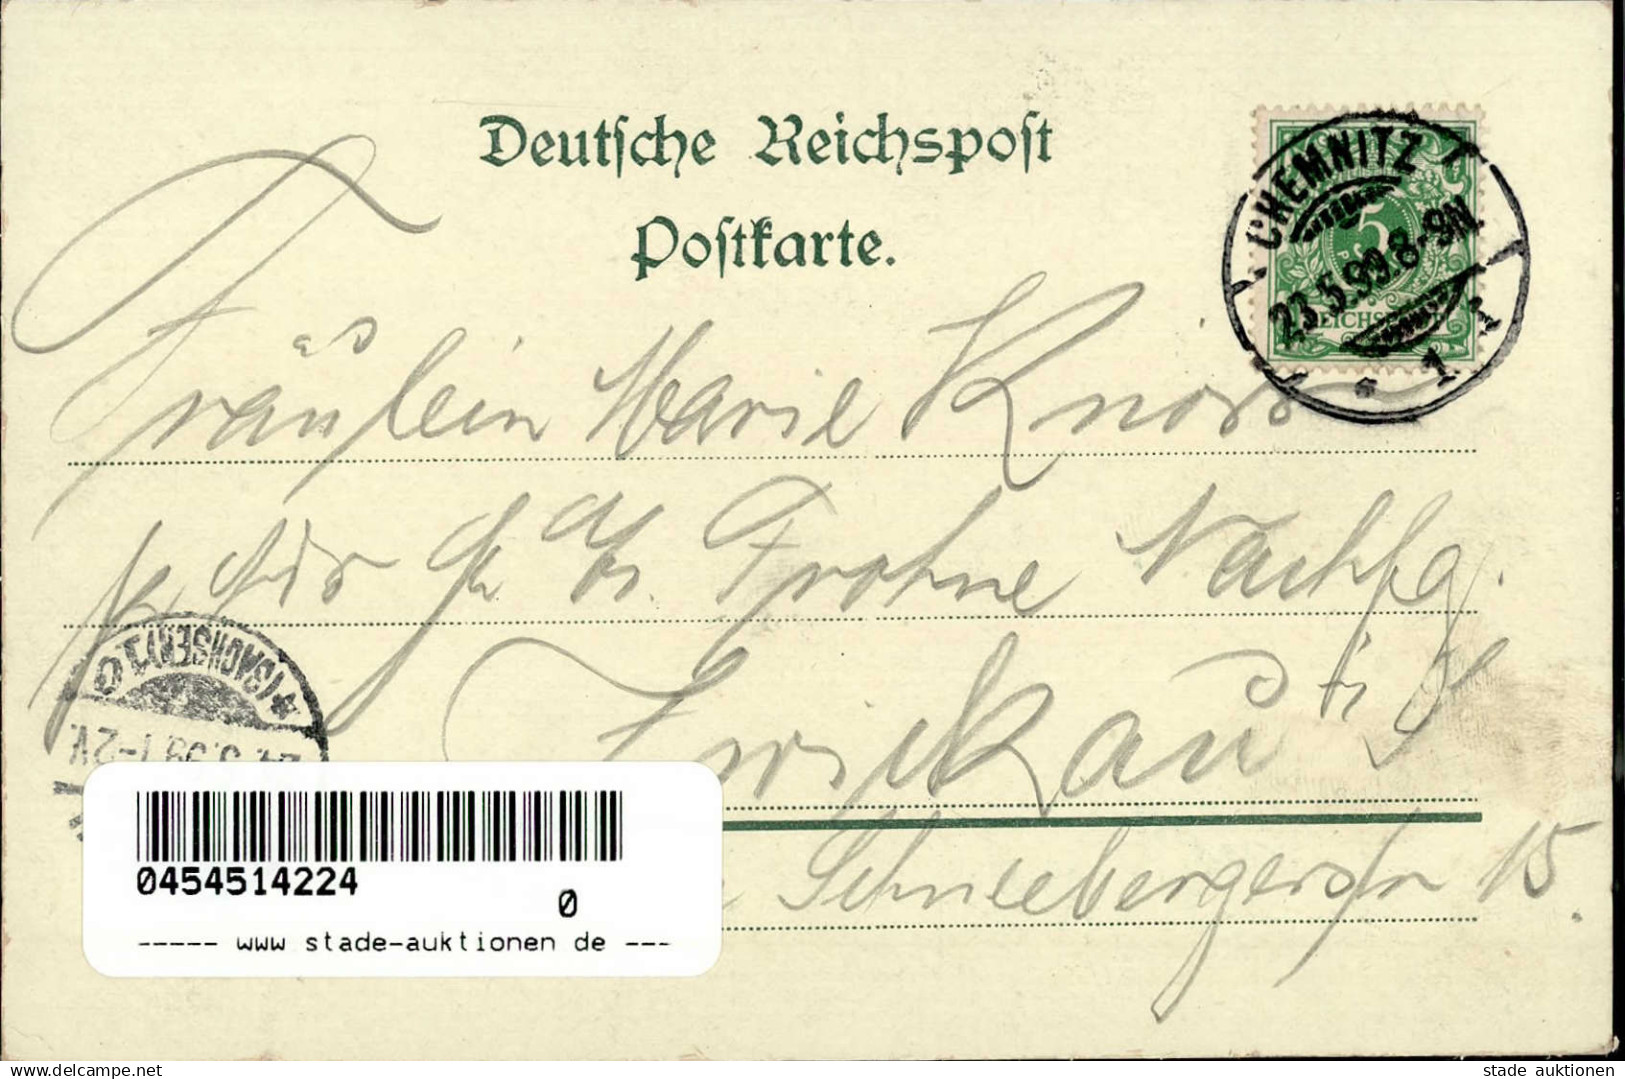 Deutsche Reichspost
Postkarte.
CHEMNITZ
23.5.99.8-9N.
* 1 *
5
REICHSPOST
Fräulein Marie Knorr
Frohne Nachflg.
Zwickau i/S
Schneebergerstr 15.
(SACHSEN)
99 1-2V
0454514224
0
----- www stade-auktionen de ---
hild-ak.com
stade auktionen